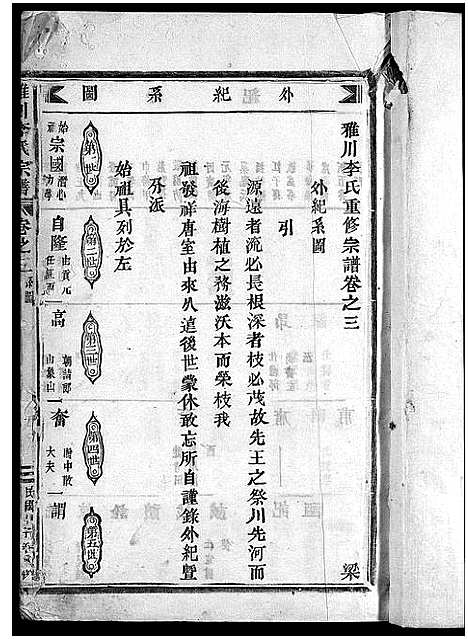 外紀系圖
雅川李氏重修宗譜卷之三
梁
外紀系圖
引
源遠者流必長根深者枝必茂故先王之祭川先河而
後海樹植之務滋沃本而榮枝我
祖發祥唐室由來八遠後世蒙休敢忘所自謹錄外紀暨
分派
始祖具列於左
第一世
第二世
第三世
第四世
第五世
始祖
宗國
潛心力學
自隆
由貢元任
高
朝請郎
山
奮
大夫
謂